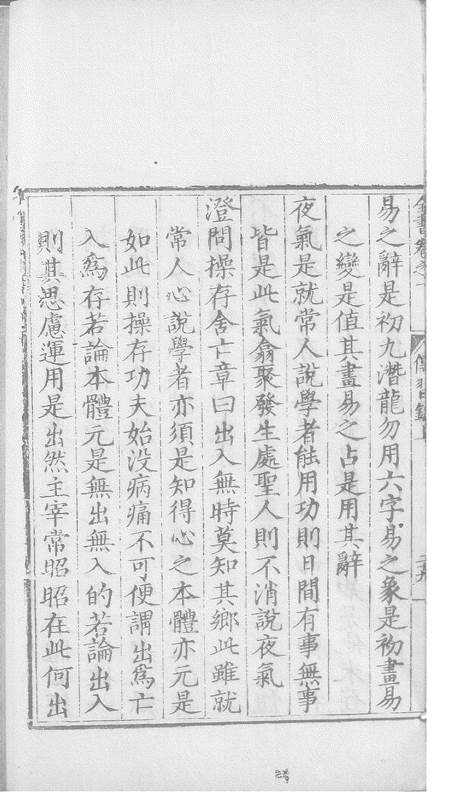 全書卷之一　傳習錄上
易之辭是初九潛龍勿用六字易之象是初畫易
之變是值其畫易之占是用其辭
夜氣是就常人說學者能用功則日間有事無事
皆是此氣翕聚發生處聖人則不消說夜氣
澄問操存舍亡章曰出入無時莫知其鄉此雖就
常人心說學者亦須是知得心之本體亦元是
如此則操存功夫始没病痛不可便謂出爲亡
入爲存若論本體元是無出無入的若論出入
則其思慮運用是出然主宰常昭昭在此何出